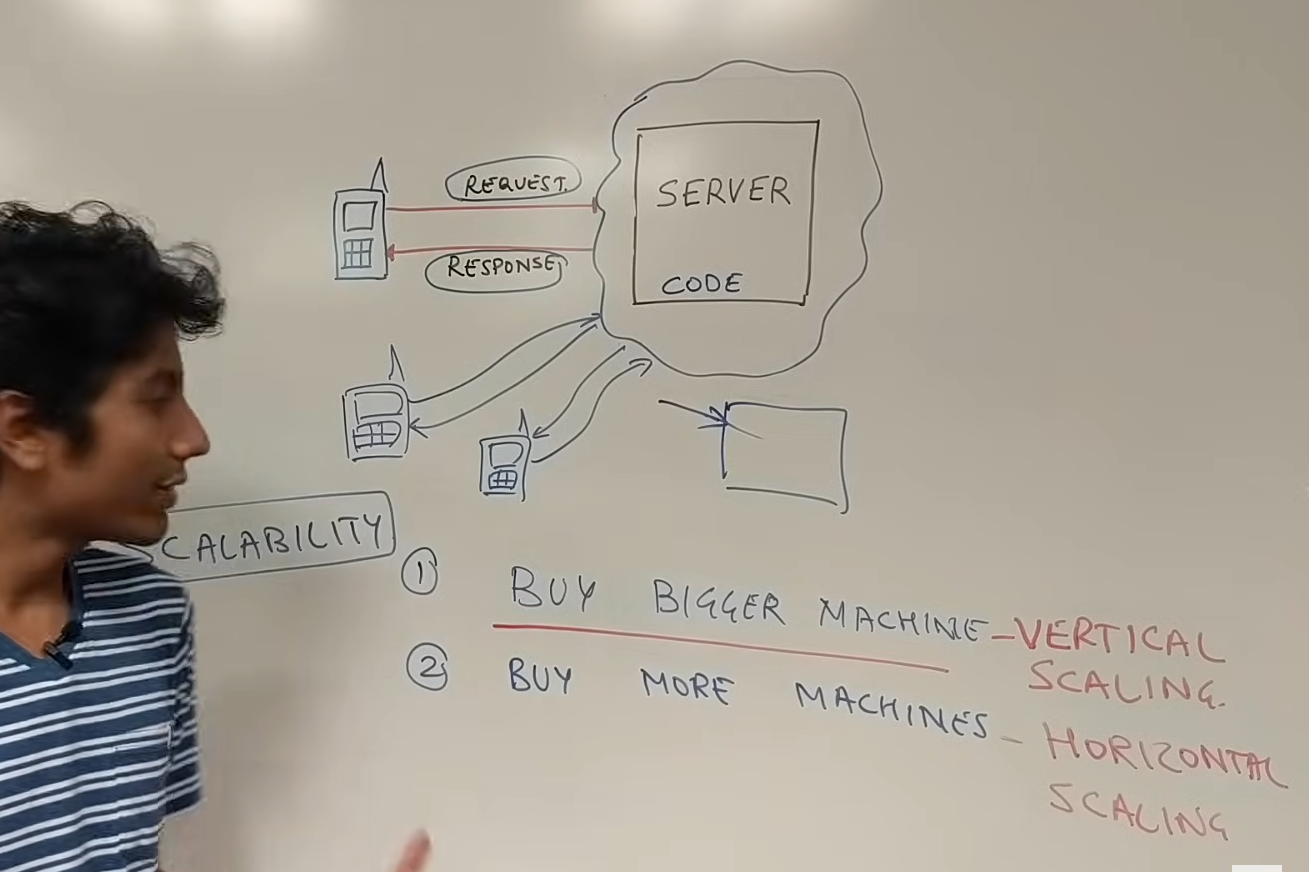 REQUEST.
SERVER
RESPONSE
CODE
CALABILITY
① BUY BIGGER MACHINE - VERTICAL
SCALING.
② BUY MORE MACHINES - HORIZONTAL
SCALING